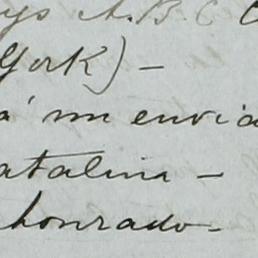 ys A.B.C C
York) —
á mi envia
atalina —
honrado.